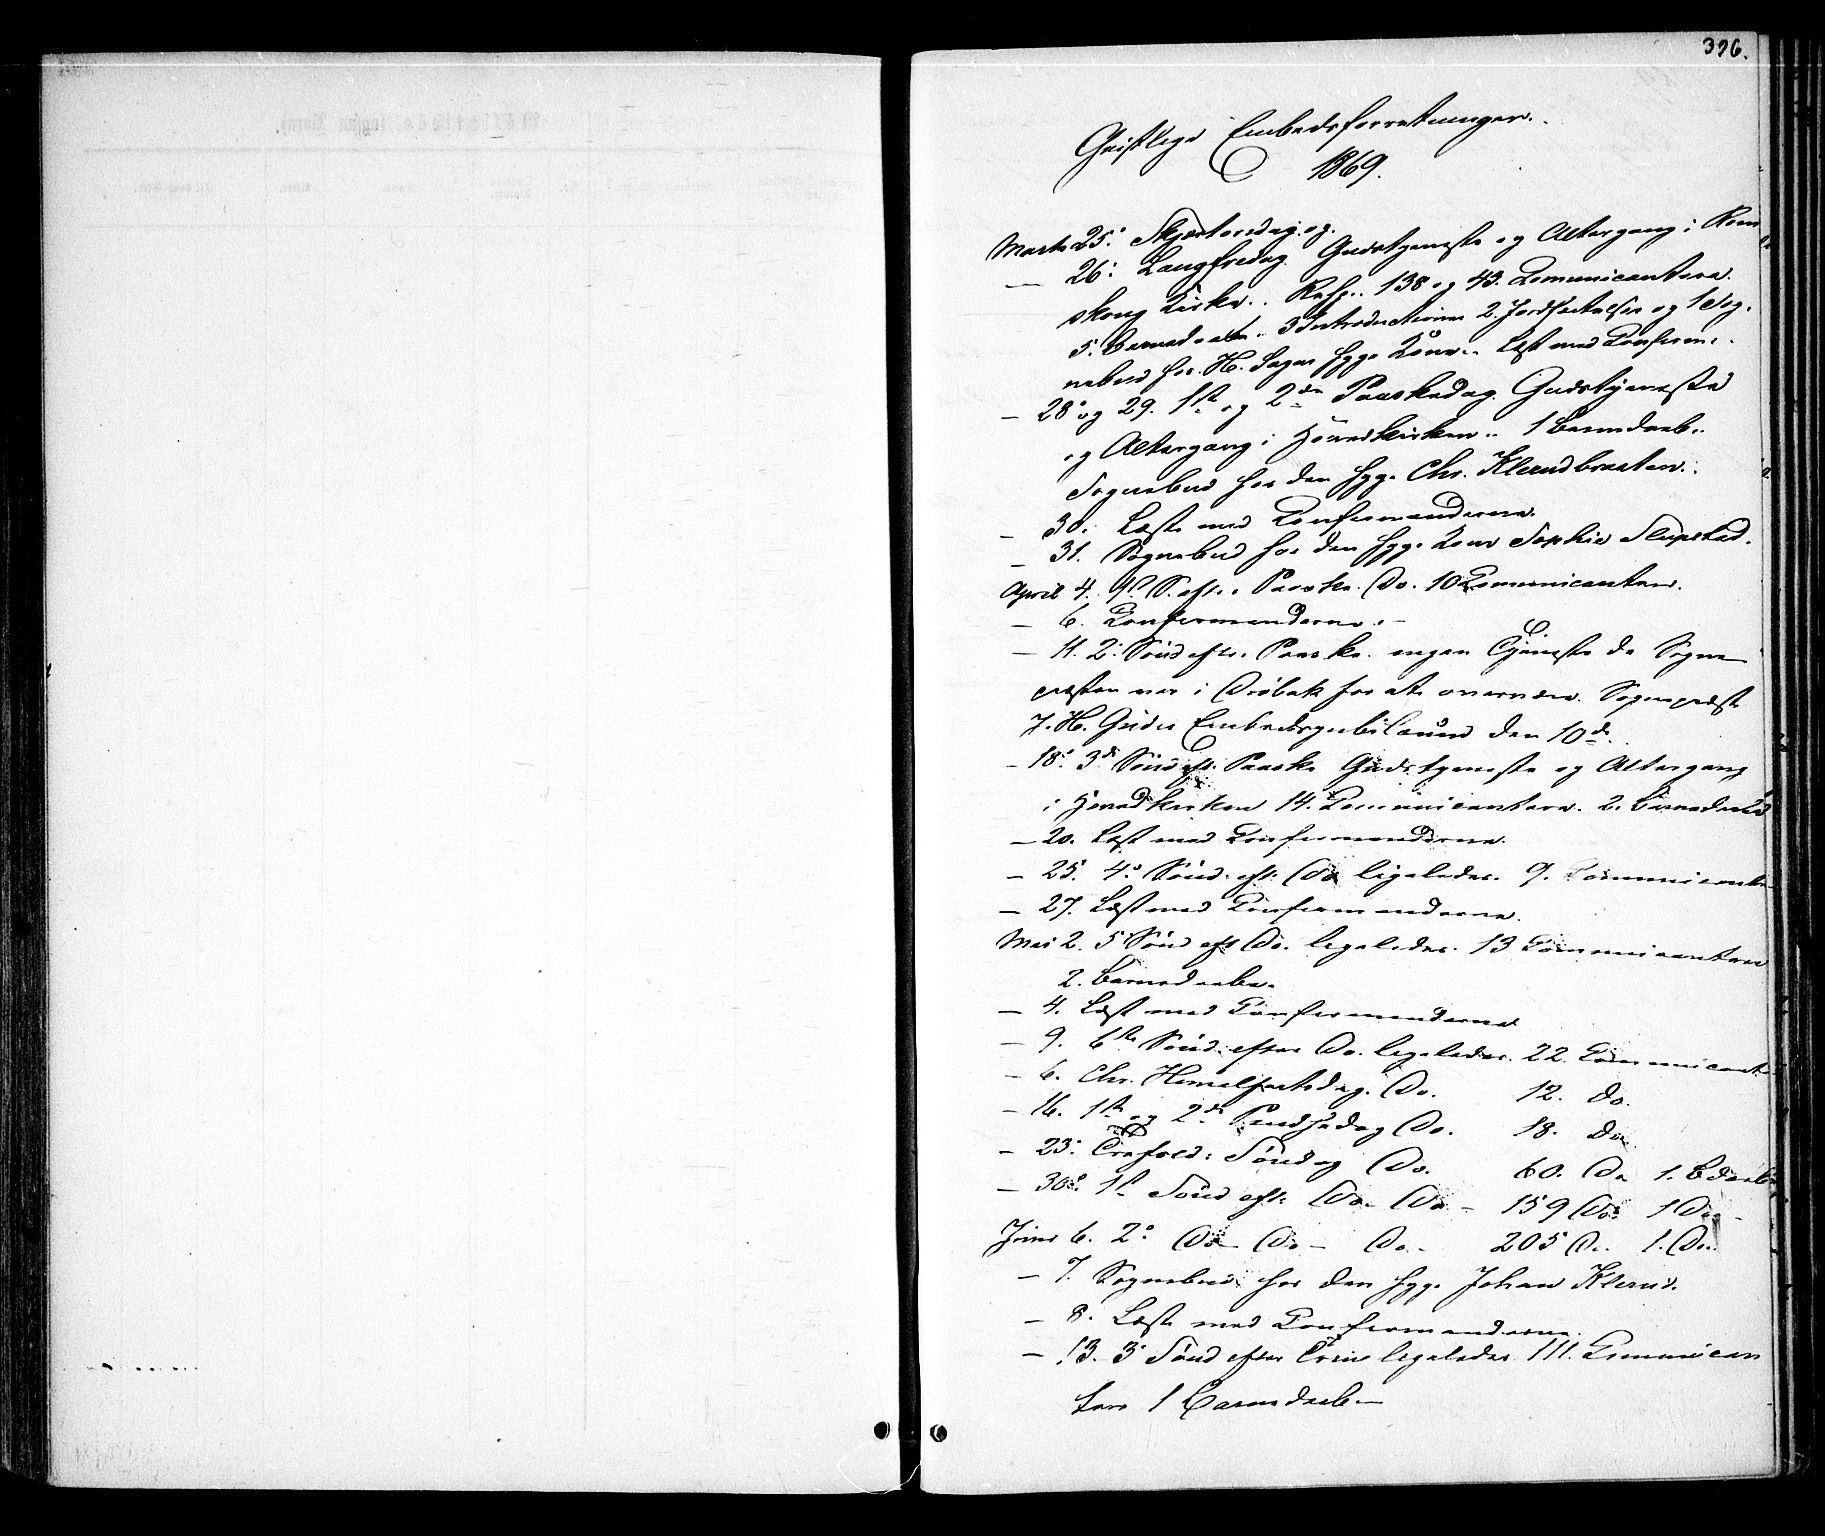 396.
Geistlige Embedsforretninger.
1869.
Marts 25: Skjærtorsdag og.
— 26: Langfredag. Gudstjeneste og Altergang i Rom
skoug Kirke.. 138 og 43. Comunicantere.
5. Barnedaab.. 3 Introductioner 2. Jordfæstelser og 1 Sog.
nebud for H. syge Kone.. Læst med Confirm..
— 28 og 29. 1ste og 2den Paaskedag. Gudstjeneste
og Altergang i Hovedkirken.. 1 Barnedaab..
Sognebud for den syge Chr. Klerudbraaten..
— 30. Læste med Confirmanderne.
— 31. Sognebud for den syge Kone Sophie Slupstad.
April 4. 1st S. eft. Paaske. Do. 10 Comunicantere.
— 6. Confirmanderne. —
— 11. 2: Sønd eft. Paaske. ingen Tjeneste da Sogne
præsten var i Drøbak for at overvære Sognepræst
J. H. Gudes Embedsjubilæum den 10de.
— 18: 3de Sønd eft. Paaske Gudstjeneste og Altergang
i Hovedkirken 14. Communicantere. 2. Barnedaab
— 20. Læst med Confirmanderne.
— 25. 4: Sønd. eft. Do ligeledes. 9. Communicante
— 27. Læst med Confirmanderne.
Mai 2. 5 Sønd eft Do. ligeledes. 13 Communicantere
2. Barnedaabe.
— 4. Læst med Confirmanderne
— 9. 6te Sønd. efter Do. ligeledes. 22. Communicant
— 6. Chr. Himelfartsdag. Do. 12. Do.
— 16. 1ste og 2den Pindsedag Do. 18. Do
— 23: Trefold: Søndag Do. 60. Do 1. Bdaab
— 30: 1st Sønd eft. Do. Do — 159 Do. 1 Do —
Juni 6. 2: Do — Do — Do. — 205 Do. 1. Do.
— 7. Sognebud for den syge Johan Klerud.
— 8. Læste med Confirmanderne.
— 13. 3 Sønd efter Trin ligeledes. 111. Comunican
tere 1 Barnedaab. —